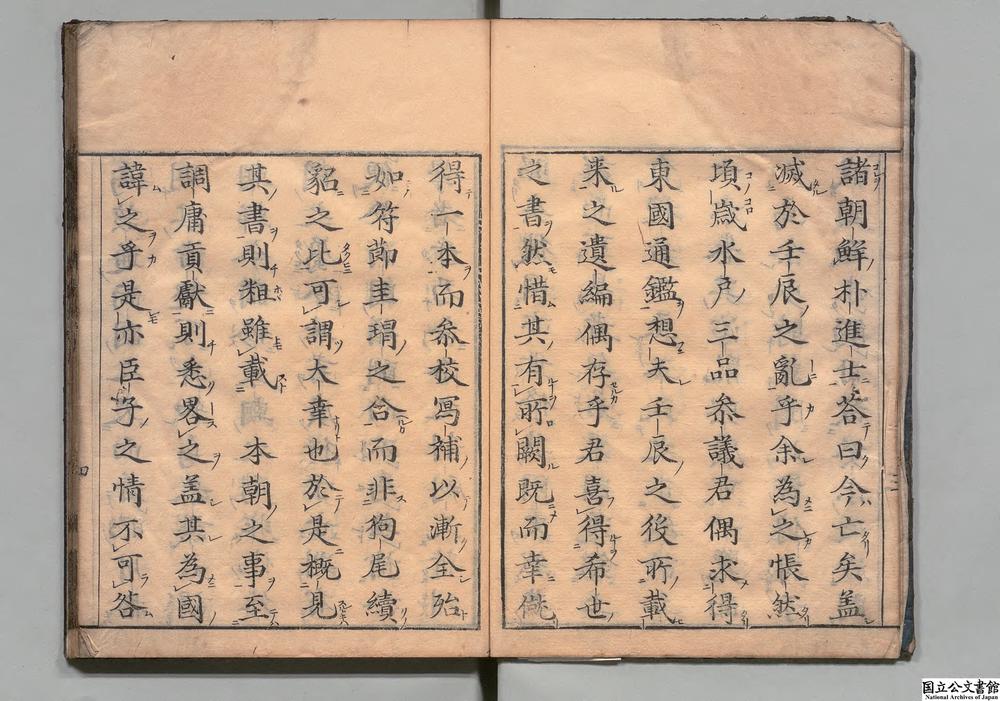 諸朝鮮朴進士答曰今亡矣盖
滅於壬辰之亂乎余為之悵然
頃歳水戸三品叅議君偶求得
東國通鑑想夫壬辰之役所載
来之遺編偶存乎君喜得希世
之書然惜其有所闕既而幸僦
得一本而叅校冩補以漸全殆
如符節圭瑁之合而非狗尾續
貂之比可謂大幸也於是概見
其書則粗雖載 本朝之事至
調庸貢獻則悉畧之盖其為國
諱之乎是亦臣子之情不可咎
三
四
国立公文書館
National Archives of Japan